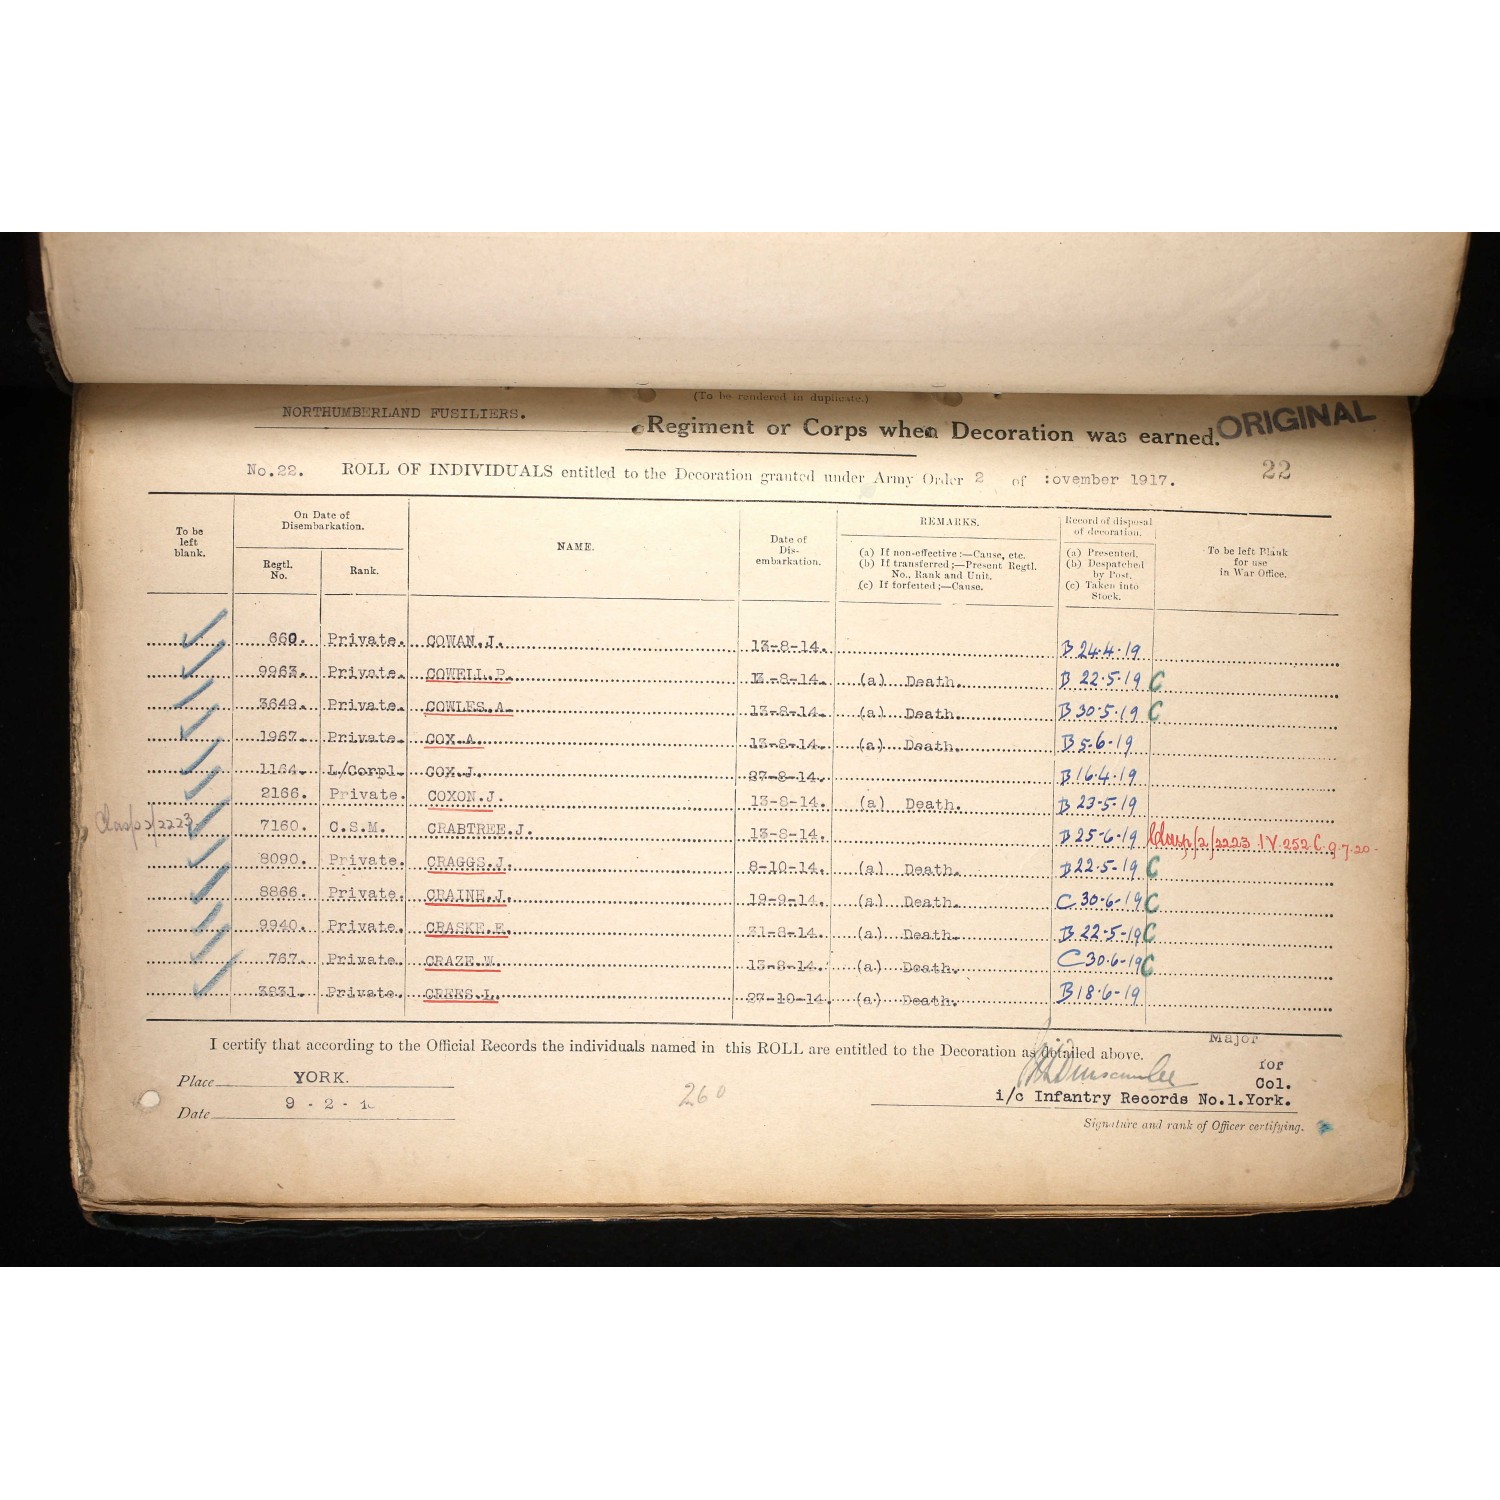 (To be rendered in duplicate.)
NORTHUMBERLAND FUSILIERS.
Regiment or Corps when Decoration was earned.
ORIGINAL
No.22. ROLL OF INDIVIDUALS entitled to the Decoration granted under Army Order 2 of :ovember 1917.
22
To be left blank.
On Date of Disembarkation.
Regtl. No.
Rank.
NAME.
Date of Dis-embarkation.
REMARKS.
(a) If non-effective:—Cause, etc.
(b) If transferred;—Present Regtl. No., Rank and Unit.
(c) If forfeited;—Cause.
Record of disposal of decoration.
(a) Presented.
(b) Despatched by Post.
(c) Taken into Stock.
To be left Blank for use in War Office.
660. Private. COWAN.J. 13-8-14. B 24·4·19
9963. Private. COWELL.P. 13-8-14. (a) Death. B 22·5·19 C
3649. Private. COWLES.A. 13-8-14. (a) Death. B 30·5·19 C
1967. Private. COX.A. 13-8-14. (a) Death. B 5·6·19
1164. L/Corpl. COX.J. 27-8-14. B 16·4·19
2166. Private. COXON.J. 13-8-14. (a) Death. B 23-5-19
Clasp 2/2223 7160. C.S.M. CRABTREE.J. 13-8-14. B 25-6-19 Clasp/2/2223 IV.252 C. 9.7.20.
8090. Private. CRAGGS.J. 8-10-14. (a) Death. B 22·5-19 C
8866. Private. CRAINE.J. 19-9-14. (a) Death. C 30·6-19 C
9940. Private. CRASKE.E. 31-8-14. (a) Death. B 22·5-19 C
767. Private. CRAZE.W. 13-8-14. (a) Death. C 30·6-19 C
3831. Private. CREES.L. 27-10-14. (a) Death. B 18·6-19
I certify that according to the Official Records the individuals named in this ROLL are entitled to the Decoration as detailed above.
Major
for
Col.
Place YORK.
i/c Infantry Records No.1.York.
Date 9 - 2 - 1
260
Signature and rank of Officer certifying.